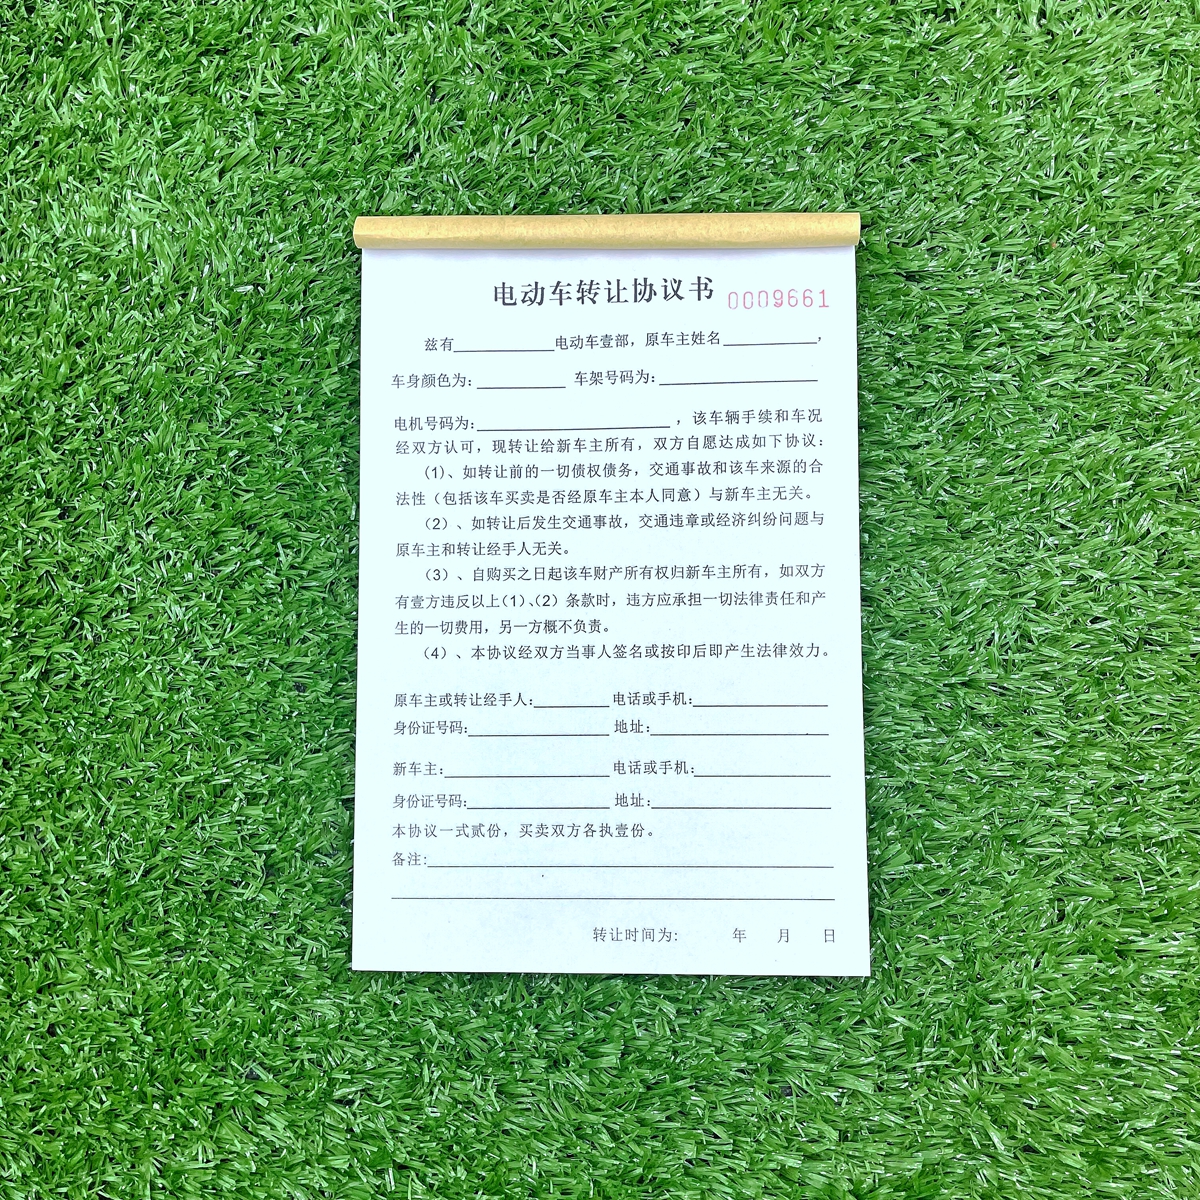 电动车转让协议书 0009661
兹有__________电动车壹部，原车主姓名__________，
车身颜色为：__________ 车架号码为：__________
电机号码为：__________，该车辆手续和车况
经双方认可，现转让给新车主所有，双方自愿达成如下协议：
（1）、如转让前的一切债权债务，交通事故和该车来源的合
法性（包括该车买卖是否经原车主本人同意）与新车主无关。
（2）、如转让后发生交通事故，交通违章或经济纠纷问题与
原车主和转让经手人无关。
（3）、自购买之日起该车财产所有权归新车主所有，如双方
有壹方违反以上（1）、（2）条款时，违方应承担一切法律责任和产
生的一切费用，另一方概不负责。
（4）、本协议经双方当事人签名或按印后即产生法律效力。
原车主或转让经手人：__________ 电话或手机：__________
身份证号码：__________ 地址：__________
新车主：__________ 电话或手机：__________
身份证号码：__________ 地址：__________
本协议一式贰份，买卖双方各执壹份。
备注：__________
转让时间为： 年 月 日